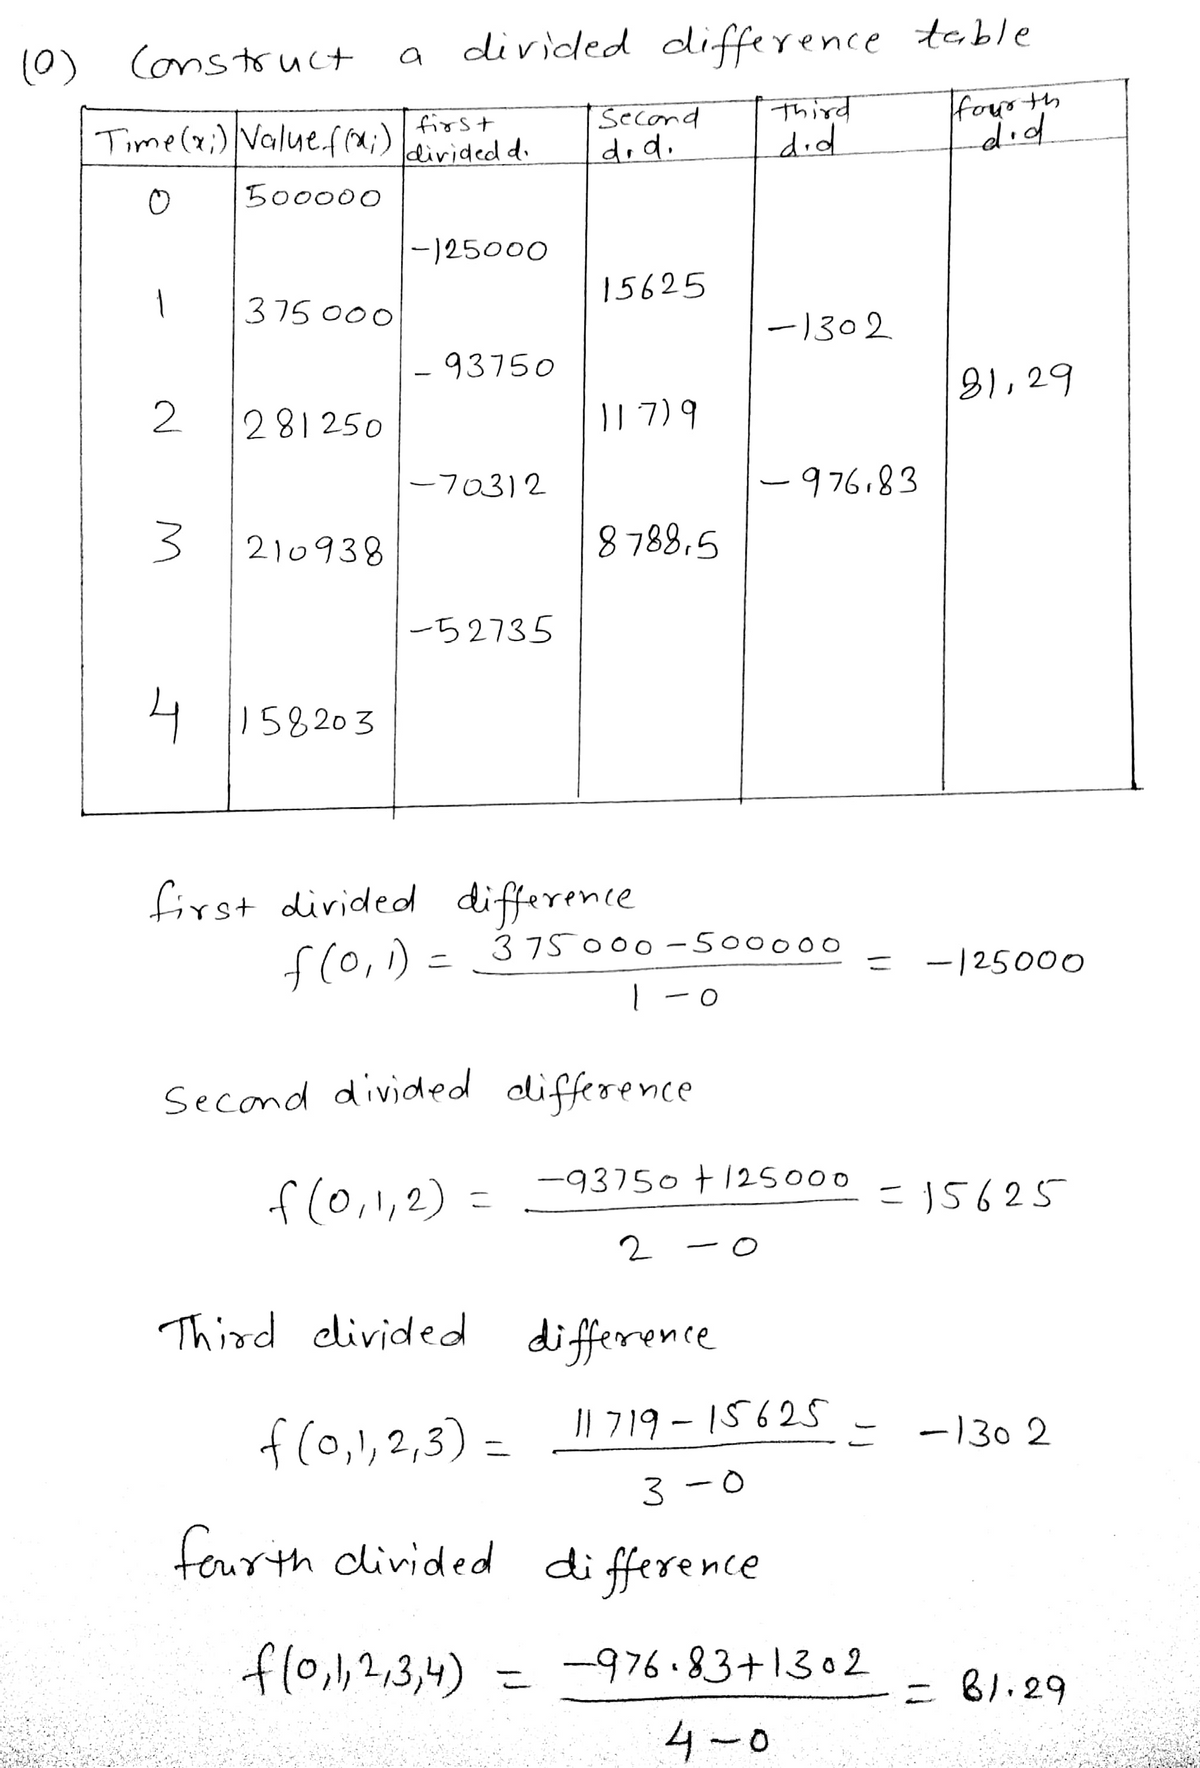 (0) Construct a divided difference table
Time(xi) Value f(xi) first divided d. Second d.d. Third d.d fourth d.d
0 500000
-125000
15625
1 375000
-1302
-93750
81.29
2 281250 11719
-70312 -976.83
3 210938 8788.5
-52735
4 158203
first divided difference
f(0,1) = 375000-500000 / 1-0 = -125000
Second divided difference
f(0,1,2) = -93750+125000 / 2-0 = 15625
Third divided difference
f(0,1,2,3) = 11719-15625 / 3-0 = -1302
fourth divided difference
f(0,1,2,3,4) = -976.83+1302 / 4-0 = 81.29